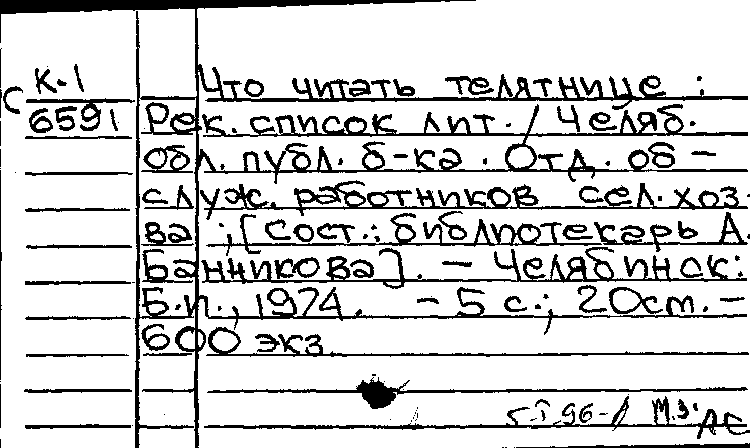 К-1 Что читать телятнице :
С 6591 Рек. список лит. / Челяб.
обл. публ. б-ка. Отд. об-
служ. работников сел. хоз-
ва ; [Сост.: библиотекарь А.
Банникова]. – Челябинск:
Б.и., 1974. – 5 с.; 20 см. –
600 экз.
5-I-96- М.З.